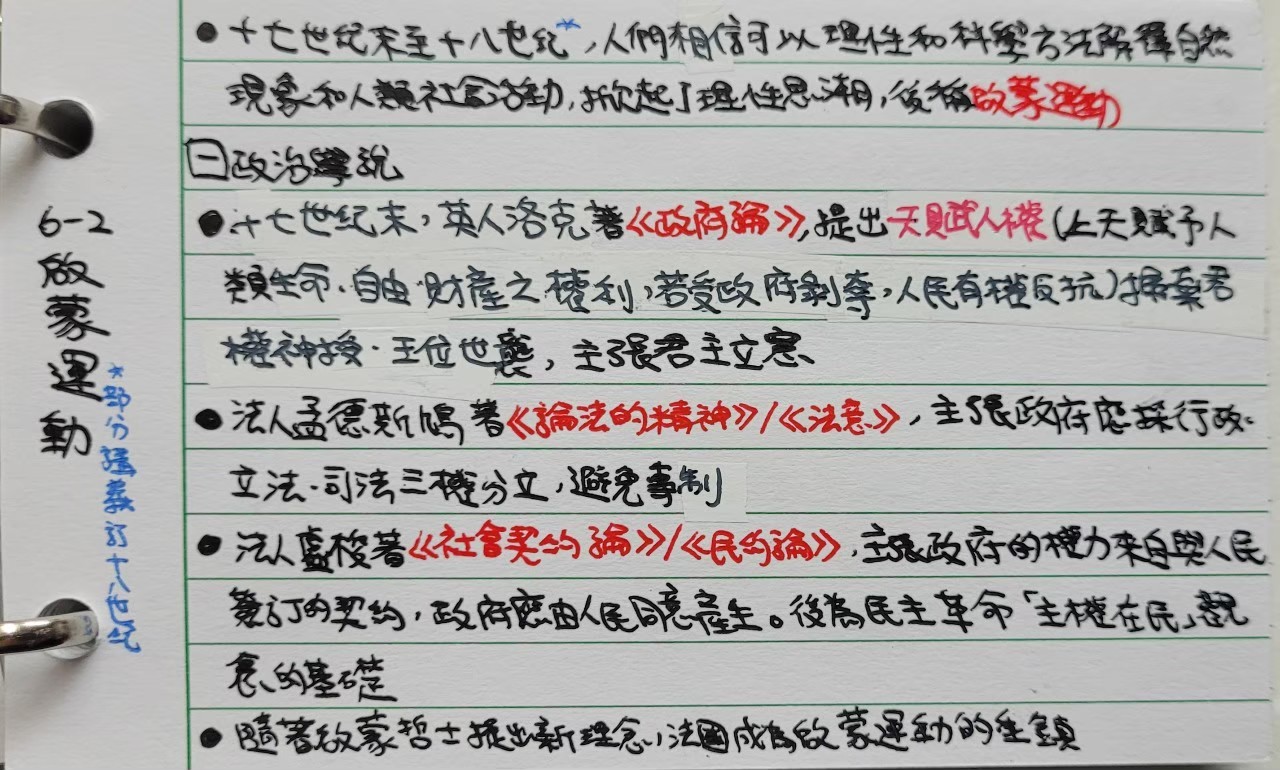 6-2 啟蒙運動
*部分講義訂十八世紀
•十七世紀末至十八世紀*,人們相信可以理性和科學方法解釋自然
現象和人類社會活動,掀起了理性思潮,後稱啟蒙運動
㊀政治學說
•十七世紀末,英人洛克著《政府論》,提出天賦人權(上天賦予人
類生命、自由、財產之權利,若受政府剝奪,人民有權反抗)摒棄君
權神授、王位世襲,主張君主立憲
•法人孟德斯鳩著《論法的精神》/《法意》,主張政府應採行政、
立法、司法三權分立,避免專制
•法人盧梭著《社會契約論》/《民約論》,主張政府的權力來自與人民
簽訂的契約,政府應由人民同意產生。後為民主革命「主權在民」觀
念的基礎
•隨著啟蒙哲士提出新理念,法國成為啟蒙運動的重鎮